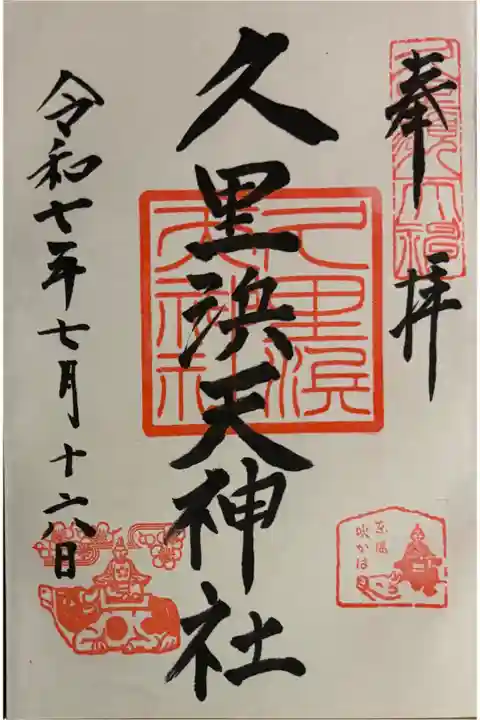 奉拝
久里浜天神社
久里浜天神社
令和七年七月十六日
東風
吹かば